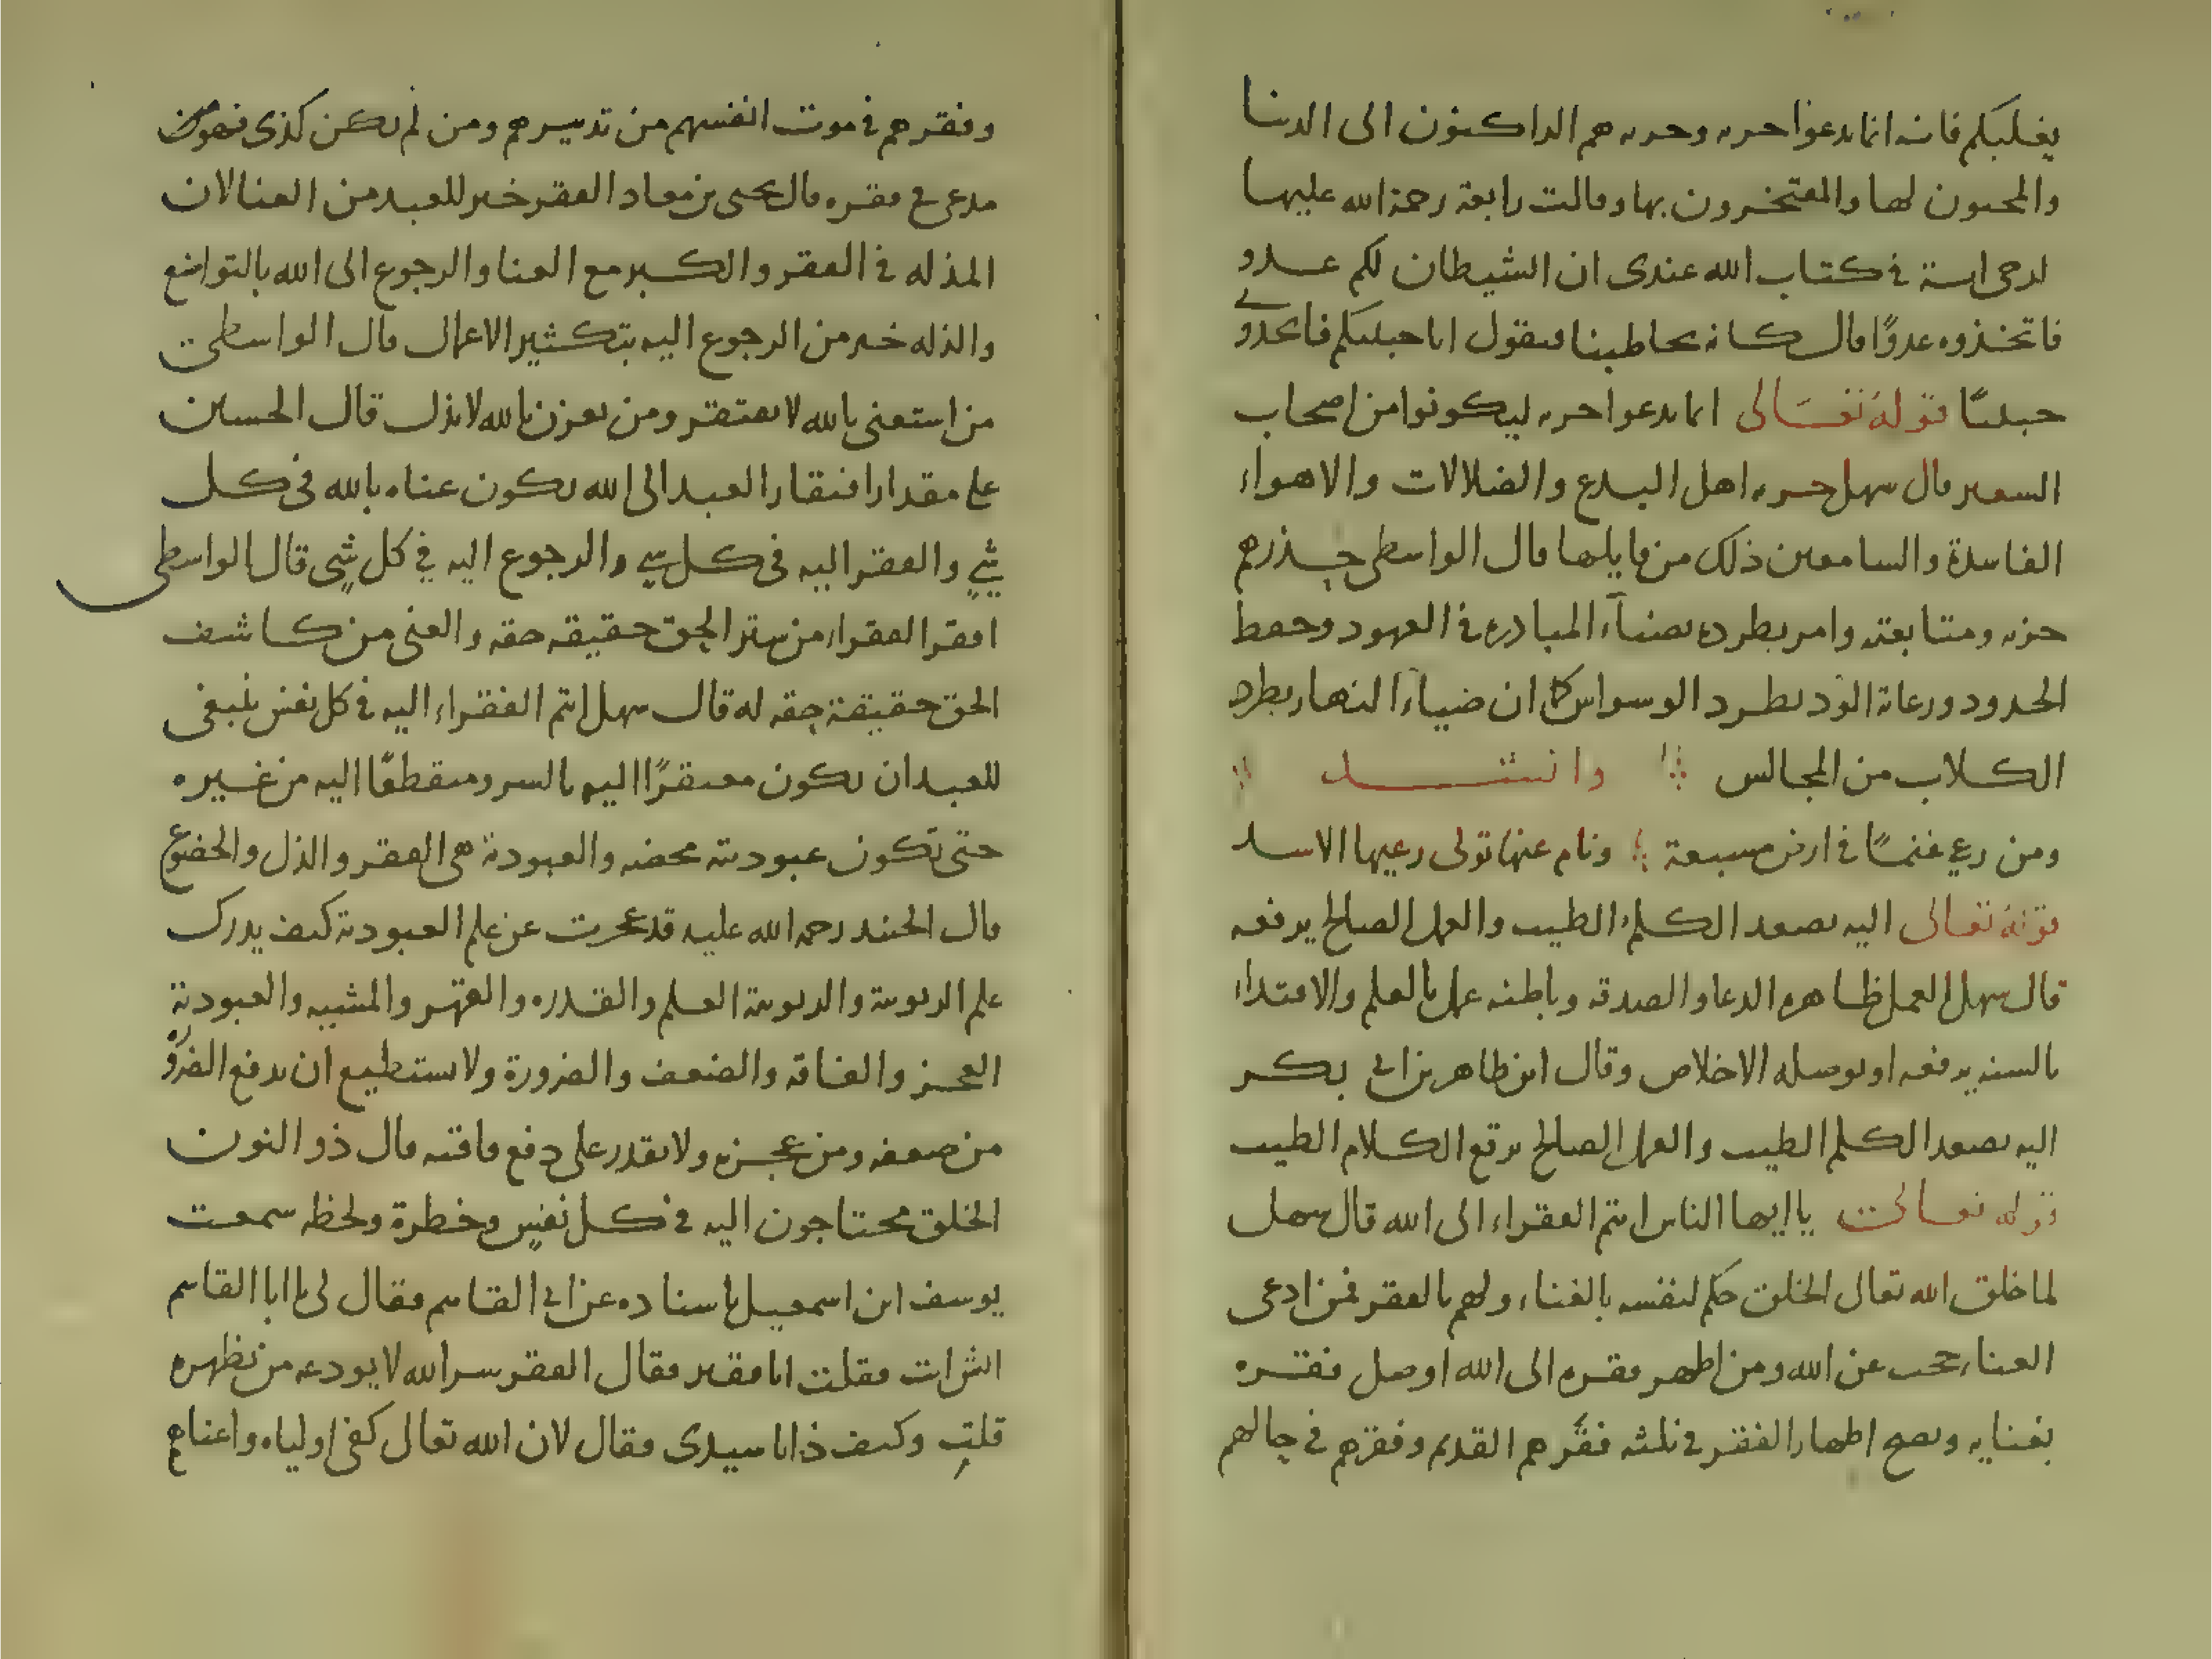 يغلبكم فانه انما يدعوا حزبه وحزبه هم الراكنون الى الدنيا
والمحبون لها والمفتخرون بها وقالت رابعة رحمة الله عليها
ارجى اية في كتاب الله عندى ان الشيطان لكم عدو
فاتخذوه عدوًا قال كانه يخاطبنا فيقول انا حبيبكم فاتخذوني
حبيبًا قوله تعالى انما يدعوا حزبه ليكونوا من اصحاب
السعير قال سهل حزبه اهل البدع والضلالات والاهواء
الفاسدة والسامعين ذلك من قايلها قال الواسطى حذرهم
حزبه ومتابعته وامر بطرده بضياء المبادره في العهود وحفظ
الحدود ورعاية الود يطرد الوسواس كما ان ضياء النهار يطرد
الكلاب من المجالس وانشد
ومن رعي غنمًا في ارض مسبعة ونام عنها تولى رعيها الاسد
قوله تعالى اليه يصعد الكلم الطيب والعمل الصالح يرفعه
قال سهل العمل ظاهره الدعا والصدقه وباطنه عمل بالعلم والاقتداء
بالسنه يرفعه او يوصله الاخلاص وقال ابن طاهر بن ابي بكر
اليه يصعد الكلم الطيب والعمل الصالح يرفع الكلام الطيب
قوله تعالى يا ايها الناس انتم الفقراء الى الله قال سهل
لما خلق الله تعالى الخلق حكم لنفسه بالغناء ولهم بالفقر فمن ادعى
الغناء حجب عن الله ومن اظهر فقره الى الله اوصل فقره
بغنايه ويصح اظهار الفقر في ثلثه فقرهم القديم وفقرهم في حالهم
وفقرهم في موت انفسهم من تدبيرهم ومن لم يكن كذى فهو
مدعى في فقره قال يحيى بن معاد الفقر خير للعبد من الغنا لان
المذله في الفقر والكبر مع الغنا والرجوع الى الله بالتواضع
والذله خير من الرجوع اليه بتكثير الاعمال قال الواسطى
من استغنى بالله لا يفتقر ومن تعزز بالله لا يذل قال الحسين
على مقدار افتقار العبد الى الله يكون غناه بالله في كل
شيٍ والفقر اليه في كل شي والرجوع اليه في كل شيٍ قال الواسطى
افقر الفقراء من ستر الحق حقيقه حقه والغنى من كاشف
الحق حقيقة حقه له قال سهل انتم الفقراء اليه في كل نفس ينبغى
للعبد ان يكون مفتقرًا اليه بالسر ومنقطعًا اليه من غيره
حتى تكون عبوديته محضه والعبودية هى الفقر والذل والخضوع
قال الجنيد رحمة الله عليه قد عجزت عن علم العبودية كيف يدرك
علم الربوبية والربوبية العلم والقدره والقهر والمشيه والعبودية
العجز والفاقه والضعف والضرورة ولا يستطيع ان يدفع الضروره
من ضعفه ومن عجزه ولا يقدر على دفع فاقته قال ذو النون
الخلق محتاجون اليه في كل نفسٍ وخطرة ولحظه سمعت
يوسف ابن اسمعيل باسناده عن ابي القاسم فقال لي يا ابا القاسم
فقلت انا فقير فقال الفقر سر الله لا يودعه من يظهره
قلت وكيف ذا يا سيدى فقال لان الله تعالى كفى اولياه واغناهم